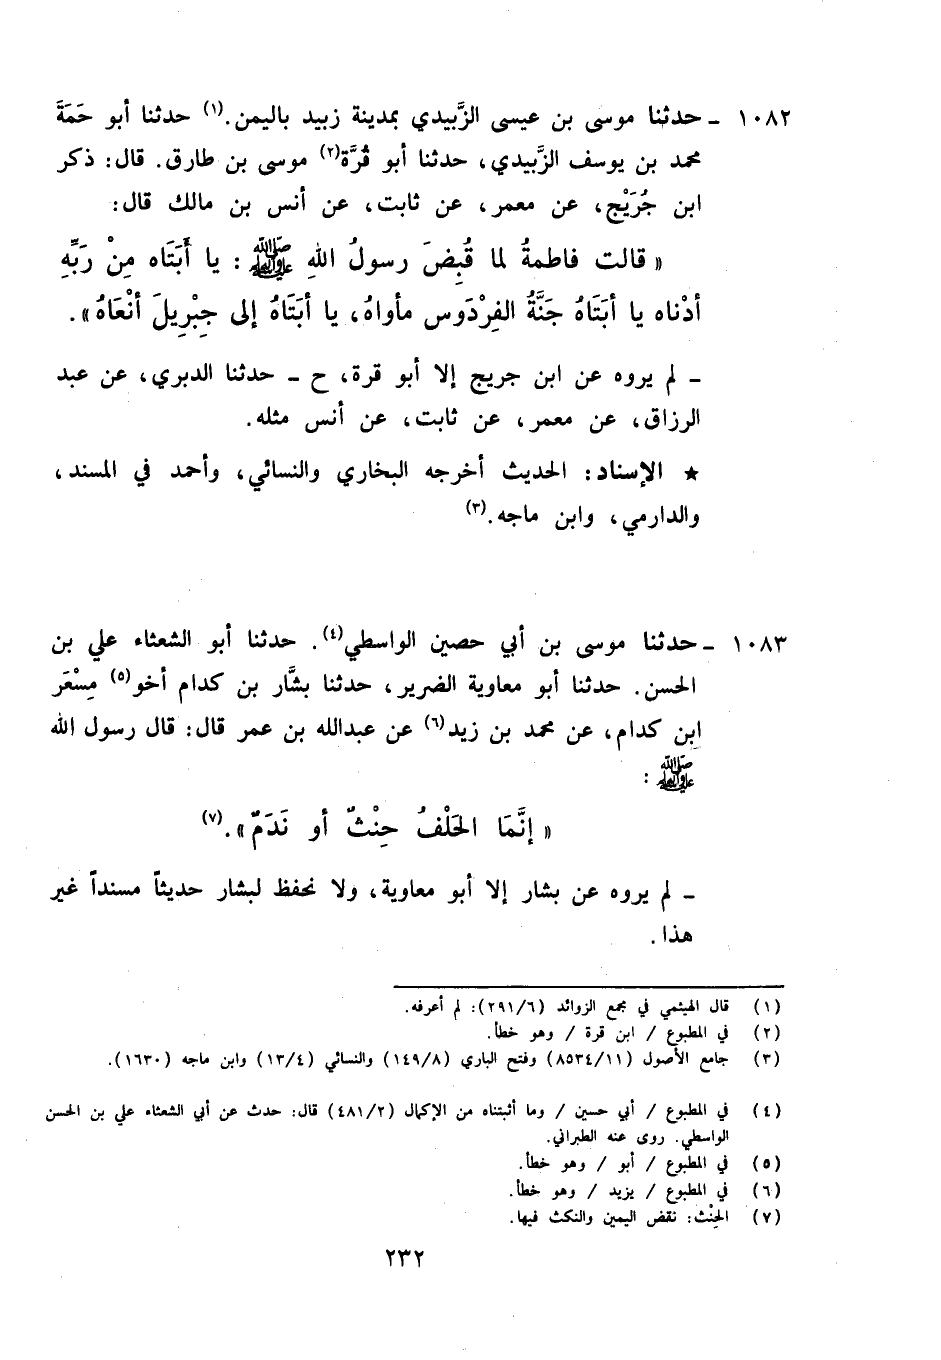 ١٠٨٢ ـ حدثنا موسى بن عيسى الزَّبيدي بمدينة زبيد باليمن.(١) حدثنا أبو حَمَةَ
محمد بن يوسف الزَّبيدي، حدثنا أبو قُرَّة(٢) موسى بن طارق. قال: ذكر
ابن جُرَيْج، عن معمر، عن ثابت، عن أنس بن مالك قال:
« قالت فاطمةُ لما قُبِضَ رسولُ اللهِ ﷺ : يا أَبَتَاه مِنْ رَبِّهِ
أدْناه يا أبَتَاهُ جَنَّةُ الفِرْدَوس مأواهُ، يا أبَتَاهُ إلى جِبْرِيلَ أنْعَاهُ».
ـ لم يروه عن ابن جريج إلا أبو قرة، ح ـ حدثنا الدبري، عن عبد
الرزاق، عن معمر، عن ثابت، عن أنس مثله.
★ الإسناد: الحديث أخرجه البخاري والنسائي، وأحمد في المسند،
والدارمي، وابن ماجه.(٣)
١٠٨٣ ـ حدثنا موسى بن أبي حصين الواسطي(٤). حدثنا أبو الشعثاء علي بن
الحسن. حدثنا أبو معاوية الضرير، حدثنا بشَّار بن كدام أخو(٥) مِسْعَر
ابن كدام، عن محمد بن زيد(٦) عن عبدالله بن عمر قال: قال رسول الله
ﷺ :
« إنَّمَا الحَلْفُ حِنْثٌ أو نَدَمٌ».(٧)
ـ لم يروه عن بشار إلا أبو معاوية، ولا نحفظ لبشار حديثاً مسنداً غير
هذا.
(١) قال الهيثمي في مجمع الزوائد (٢٩١/٦): لم أعرفه.
(٢) في المطبوع / ابن قرة / وهو خطأ.
(٣) جامع الأصول (٨٥٣٤/١١) وفتح الباري (١٤٩/٨) والنسائي (١٣/٤) وابن ماجه (١٦٣٠).
(٤) في المطبوع / أبي حسين / وما أثبتناه من الإكمال (٤٨١/٢) قال: حدث عن أبي الشعثاء علي بن الحسن
الواسطي. روى عنه الطبراني.
(٥) في المطبوع / أبو / وهو خطأ.
(٦) في المطبوع / يزيد / وهو خطأ.
(٧) الحِنْث: نقض اليمين والنكث فيها.
٢٣٢